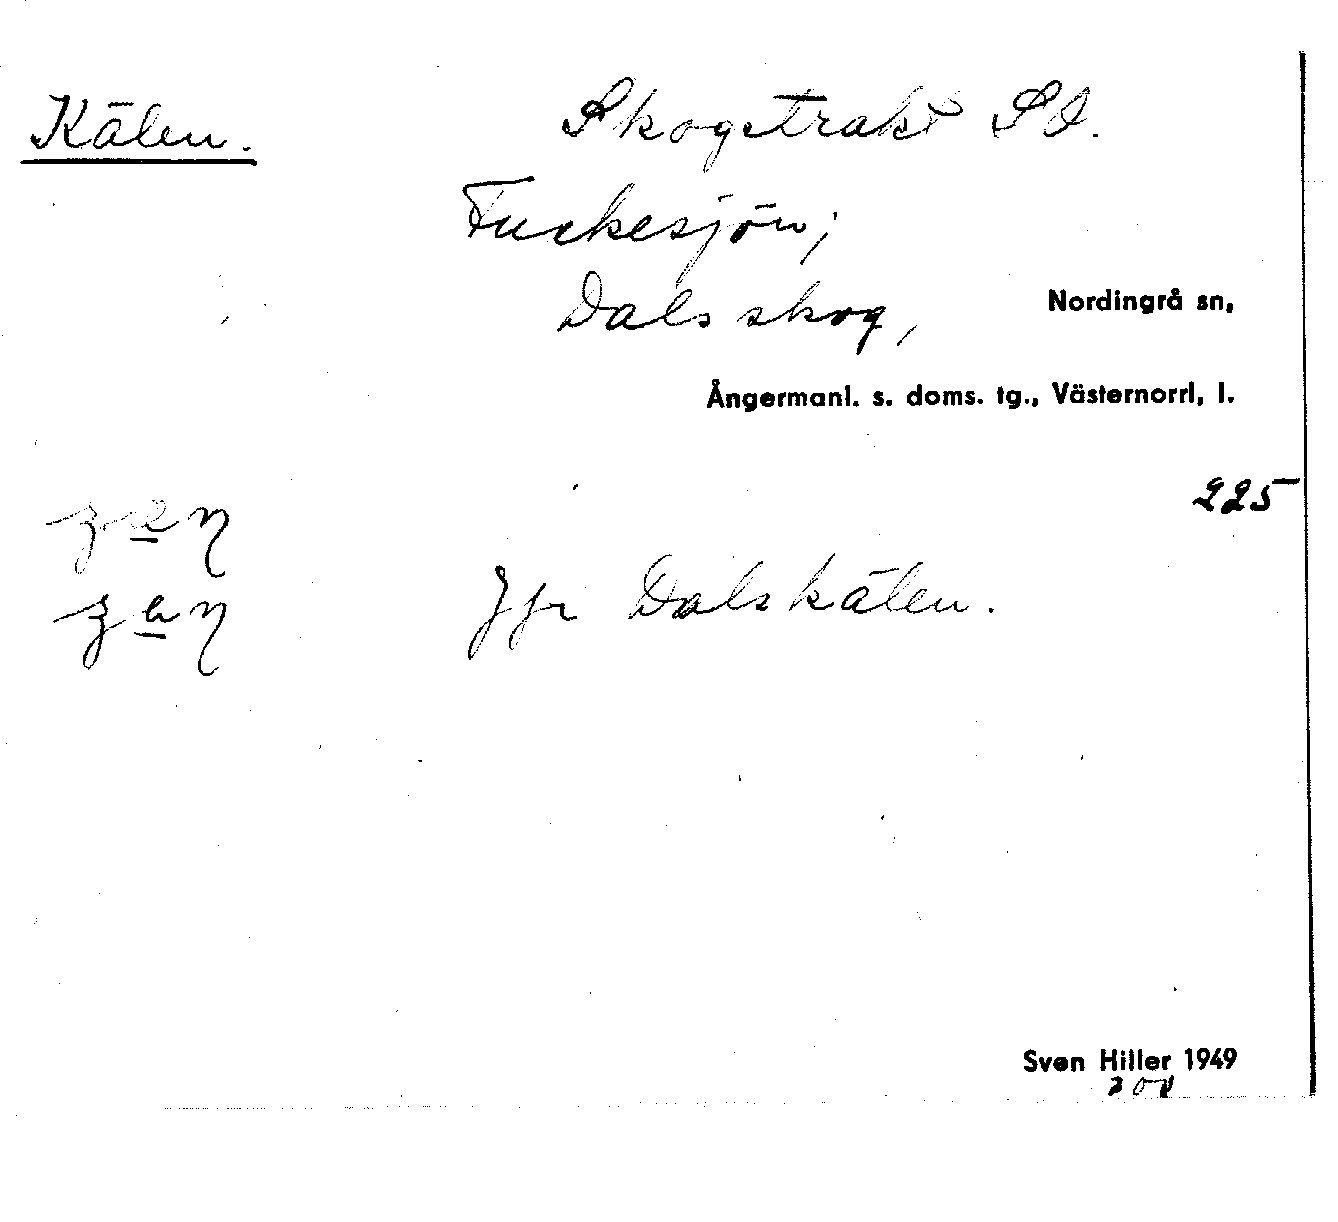 Kälen.
Skogstrakt SO.
Fuckesjön;
Dals skog,
Nordingrå sn,
Ångermanl. s. doms. tg., Västernorrl, l.
225
Jfr Dalskälen.
Sven Hiller 1949